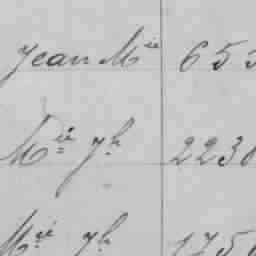 Jean Mie 653
Mie Jh 2230
Mie Jh 1750